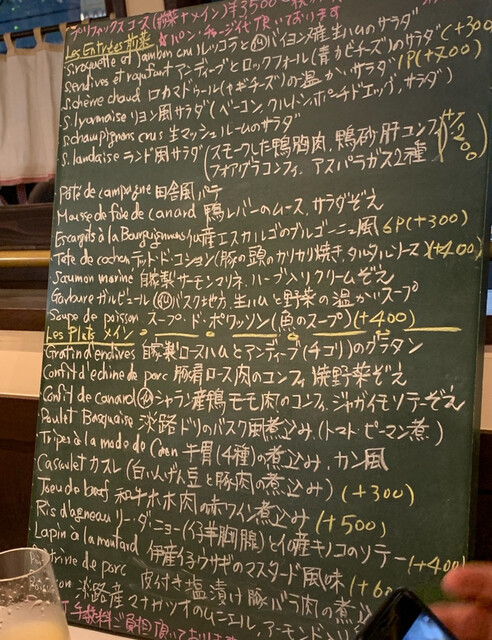 プリフィックスコース(前菜+メイン)¥3500
★パン・チャージ代頂いております
Les Entrées 前菜
S.roquette et jambon cru ルッコラと仏バイヨンヌ産生ハムのサラダ(+300)
S.endives et roquefort アンディーブとロックフォール(青カビチーズ)のサラダ
S.chèvre chaud ロカマドゥール(ヤギチーズ)の温かいサラダ 1P(+700)
S.lyonnaise リヨン風サラダ(ベーコン,クルトン,ポーチドエッグ,サラダ)
S.champignons crus 生マッシュルームのサラダ
S.landaise ランド風サラダ(スモークした鴨胸肉,鴨砂肝コンフィ
フォアグラコンフィ,アスパラガス2種)
Pâté de campagne 田舎風パテ
Mousse de foie de canard 鴨レバーのムース,サラダぞえ
Escargots à la Bourguignonne 仏産エスカルゴのブルゴーニュ風 6P(+300)
Tête de cochon テット・ド・コション(豚の頭のカリカリ焼き,タルタルソース)(+400)
Saumon mariné 自家製サーモンマリネ,ハーブ入りクリームぞえ
Garbure ガルビュール(仏)バスク地方,生ハムと野菜の温かいスープ
Soupe de poisson スープ・ド・ポワッソン(魚のスープ)(+400)
Les Plats メイン
Gratin d'endives 自家製ロースハムとアンディーブ(チコリ)のグラタン
Confit d'échine de porc 豚肩ロース肉のコンフィ 焼野菜ぞえ
Confit de canard 仏シャラン産鴨モモ肉のコンフィ,ジャガイモソテーぞえ
Poulet Basquaise 淡路ドリのバスク風煮込み,(トマト・ピーマン煮)
Tripes à la mode de Caen 牛胃(4種)の煮込み,カン風
Cassoulet カスレ(白いんげん豆と豚肉の煮込み)
Joue de bœuf 和牛ホホ肉の赤ワイン煮込み (+300)
Ris d'agneau リー・ダニョー(仔羊胸腺)と仏産キノコのソテー (+500)
Lapin à la moutarde 伊産仔ウサギのマスタード風味 (+400)
Poitrine de porc 皮付き塩漬け豚バラ肉の煮込
淡路産マナガツオのムニエル,アーモンド